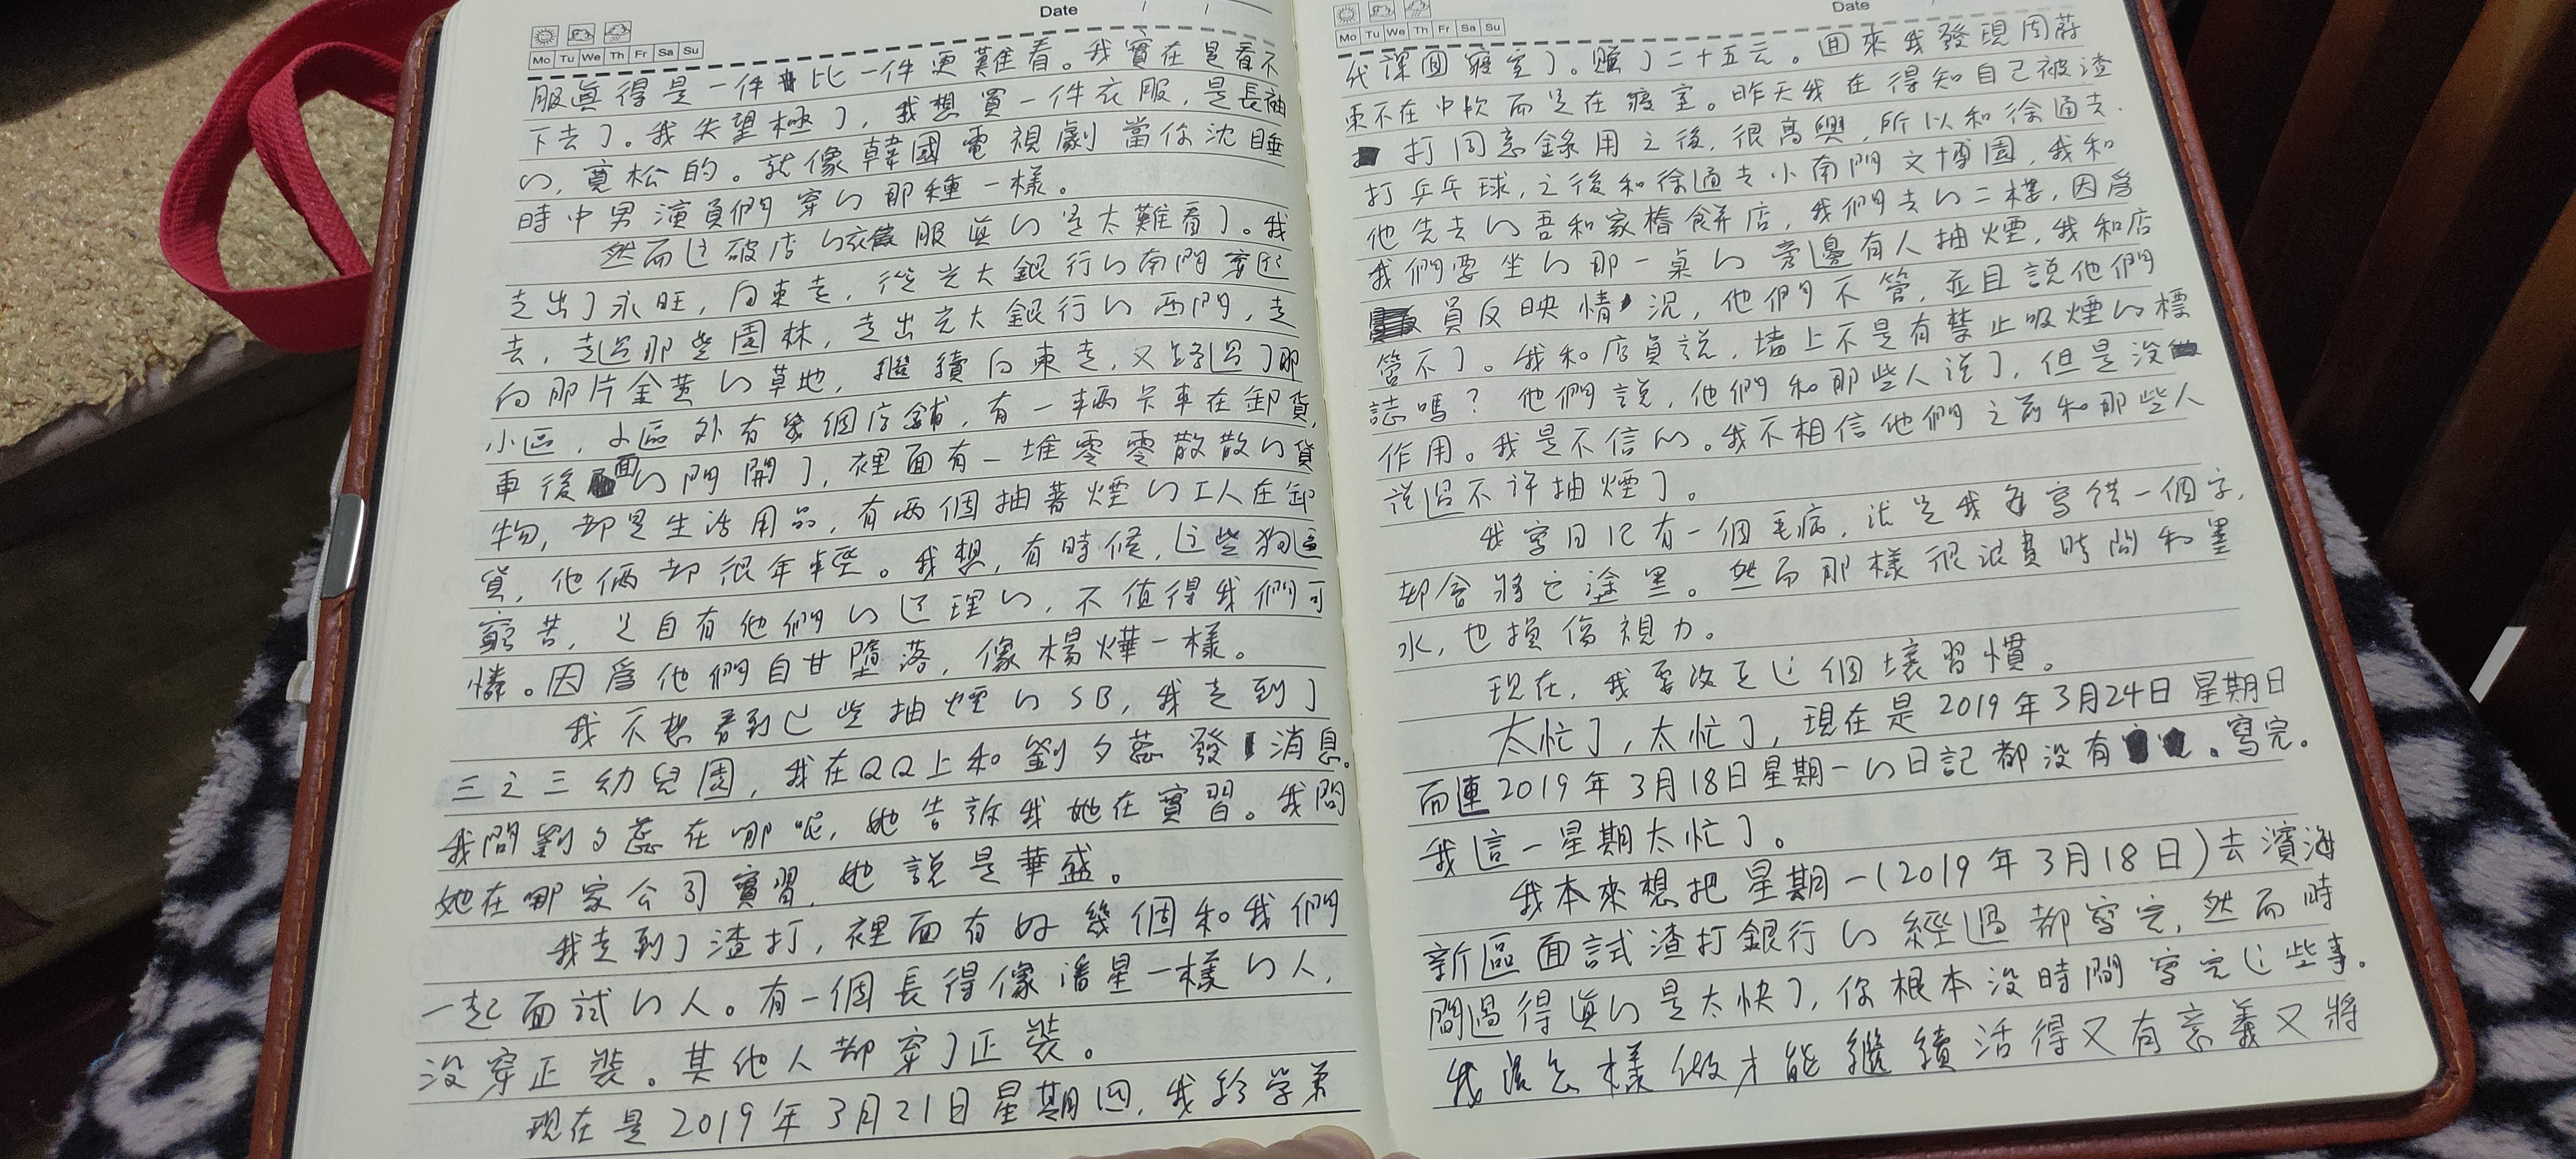 Date
Mo Tu We Th Fr Sa Su
服眞得是一件比一件更難看。我實在是看不
下去了。我失望極了,我想買一件衣服,是長袖
的,寬松的。就像韓國電視劇當你沈睡
時中男演員們穿的那種一樣。
然而這破店的衣服眞的是太難看了。我
走出了永旺,向東走,從光大銀行的南門穿過
去,走過那些園林,走出光大銀行的西門,走
向那片金黃的草地,繼續向東走,又路過了那
小區,小區外有幾個店鋪,有一輛卡車在卸貨,
車後面的門開了,裡面有一堆零零散散的貨
物,却是生活用品,有兩個抽著煙的工人在卸
貨,他倆却很年輕。我想,有時候,這些狗逼
窮苦,是自有他們的道理的,不值得我們可
憐。因爲他們自甘墮落,像楊燁一樣。
我不想看到這些抽煙的SB,我走到了
三之三幼兒園,我在QQ上和劉夕蕊發消息。
我問劉夕蕊在哪呢,她告訴我她在實習。我問
她在哪家公司實習,她說是華盛。
我走到了渣打,裡面有好幾個和我們
一起面試的人。有一個長得像潘星一樣的人,
沒穿正裝。其他人都穿了正裝。
現在是2019年3月21日星期四,我給學弟
Date
Mo Tu We Th Fr Sa Su
代課回寢室了。賺了二十五元。回來我發現周蔚
東不在中欧而是在寢室。昨天我在得知自己被渣
打同意錄用之後,很高興,所以和徐通去
打乒乓球,之後和徐通去小南門文博園,我和
他先去的吾和家椿餅店,我們去的二樓,因爲
我們要坐的那一桌的旁邊有人抽煙,我和店
員反映情況,他們不管,並且說他們
管不了。我和店員說,墙上不是有禁止吸煙的標
誌嗎?他們說,他們和那些人说了,但是没
作用。我是不信的。我不相信他們之前和那些人
说過不许抽煙了。
我寫日记有一個毛病,就是我每寫错一個字,
却會將它塗黑。然而那樣很浪費時間和墨
水,也損傷視力。
現在,我要改正這個壞習慣。
太忙了,太忙了,現在是2019年3月24日星期日
而連2019年3月18日星期一的日記都没有寫完。
我這一星期太忙了。
我本來想把星期一(2019年3月18日)去濱海
新區面試渣打銀行的經過都寫完,然而時
間過得眞的是太快了,你根本没時間寫完這些事。
我該怎樣做才能繼續活得又有意義又將